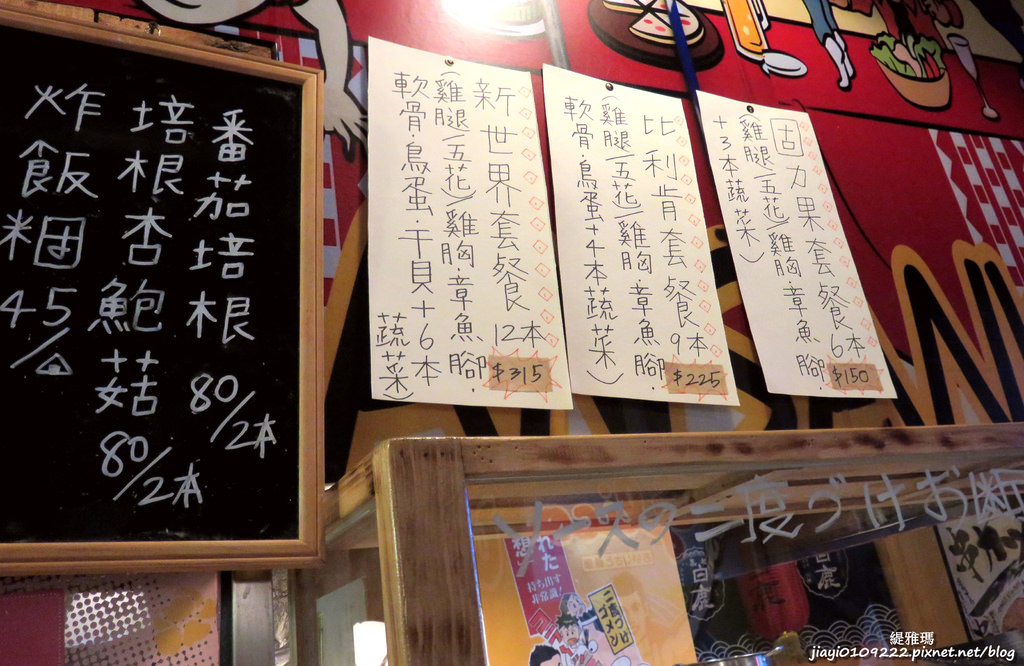 番茄培根 80/2本
培根杏鮑菇 80/2本
炸飯糰 45/
新世界套餐 12本
(雞腿/五花/雞胸·章魚腳·
軟骨·鳥蛋·干貝+6本
蔬菜)
$315
比利肯套餐 9本
(雞腿/五花/雞胸·章魚腳·
軟骨·鳥蛋+4本蔬菜)
$225
固力果套餐 6本
(雞腿/五花/雞胸·章魚腳
+3本蔬菜)
$150
ソースの二度づけお断
れた
持ち出す
非常識!
二度づけ
ゴメン
白鹿
白鹿
串カツ
緹雅瑪
jiayi0109222.pixnet.net/blog